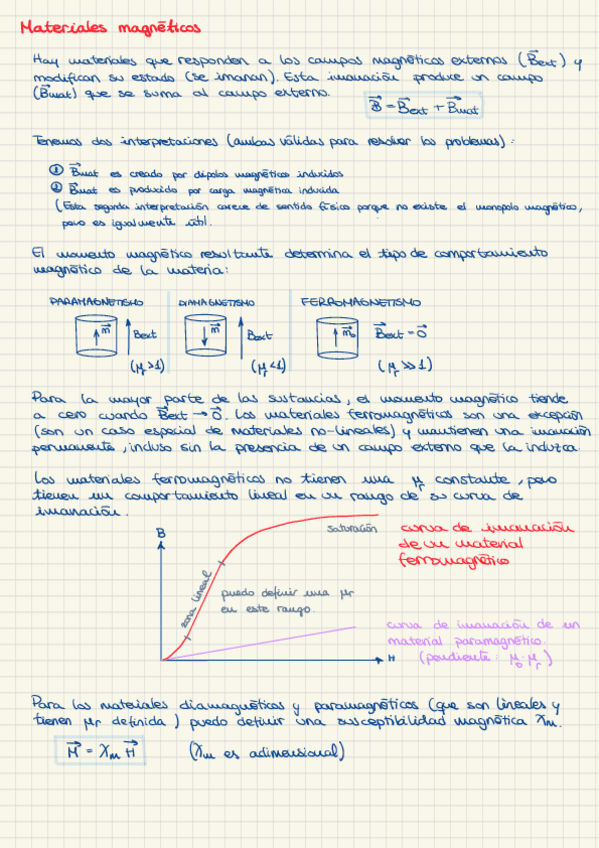 Materiales magnéticos
Hay materiales que responden a los campos magnéticos externos (B⃗ext) y
modifican su estado (se imanan). Esta imanación produce un campo
(B⃗mat) que se suma al campo externo.
B⃗ = B⃗ext + B⃗mat
Tenemos dos interpretaciones (ambas válidas para resolver los problemas):
① B⃗mat es creado por dipolos magnéticos inducidos
② B⃗mat es producido por carga magnética inducida
(Esta segunda interpretación carece de sentido físico porque no existe el monopolo magnético,
pero es igualmente útil.
El momento magnético resultante determina el tipo de comportamiento
magnético de la materia:
PARAMAGNETISMO DIAMAGNETISMO FERROMAGNETISMO
m⃗ Bext m⃗ Bext m⃗₀ B⃗ext = 0⃗
(μr>1) (μr<1) (μr>>1)
Para la mayor parte de las sustancias, el momento magnético tiende
a cero cuando B⃗ext → 0⃗. Los materiales ferromagnéticos son una excepción
(son un caso especial de materiales no-lineales) y mantienen una imanación
permanente, incluso sin la presencia de un campo externo que la induzca
Los materiales ferromagnéticos no tienen una μr constante, pero
tienen un comportamiento lineal en un rango de su curva de
imanación.
B
saturación
curva de imanación
de un material
ferromagnético
zona lineal
puedo definir una μr
en este rango.
curva de imanación de un
material paramagnético.
(pendiente: μ₀·μr)
H
Para los materiales diamagnéticos y paramagnéticos (que son lineales y
tienen μr definida) puedo definir una susceptibilidad magnética χm.
M⃗ = χm H⃗ (χm es adimensional)